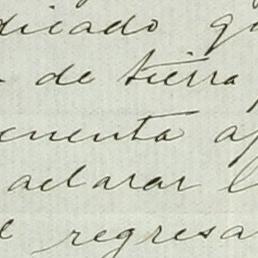 dicado qu
de tierra
enenta a
aclarar l
regresa